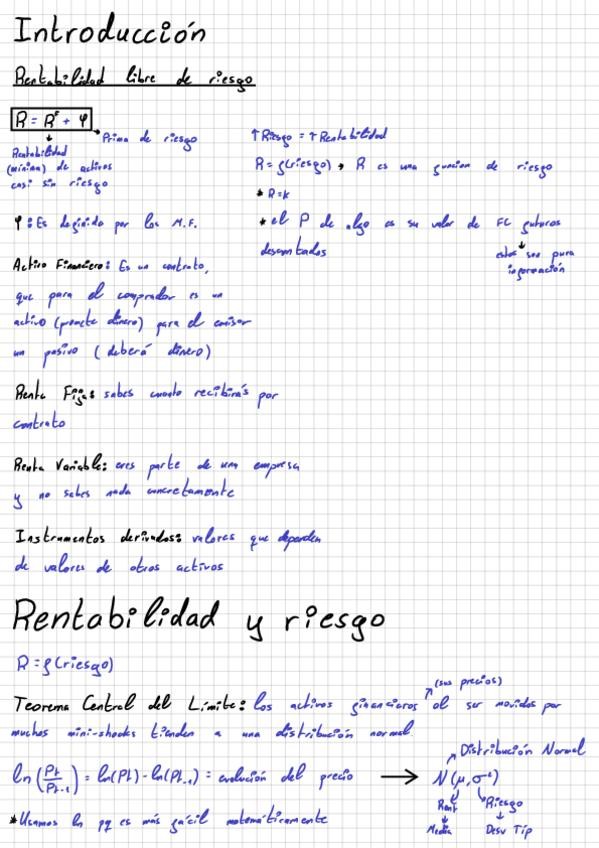 Introducción
Rentabilidad libre de riesgo
R = Rᶠ + φ
Prima de riesgo
Rentabilidad
(mínima) de activos
casi sin riesgo
↑Riesgo = ↑Rentabilidad
R = f(riesgo) → R es una funcion de riesgo
* R=k
φ: Es definido por los M.F.
* el P de algo es su valor de FC futuros
descontados
estos son pura
información
Activo Financiero: Es un contrato,
que para el comprador es un
activo (promete dinero) para el emisor
un pasivo (deberá dinero)
Renta Fija: sabes cuanto recibirás por
contrato
Renta Variable: eres parte de una empresa
y no sabes nada concretamente
Instrumentos derivados: valores que dependen
de valores de otros activos
Rentabilidad y riesgo
R = f(riesgo)
(sus precios)
Teorema Central del Límite: los activos financieros al ser movidos por
muchos mini-shocks tienden a una distribución normal.
Distribución Normal
ln (Pt/Pt-1) = ln(Pt) - ln(Pt-1) = evolución del precio → N(μ, σ²)
Rent Riesgo
Media Desv Típ
*Usamos ln pq es más fácil matemáticamente